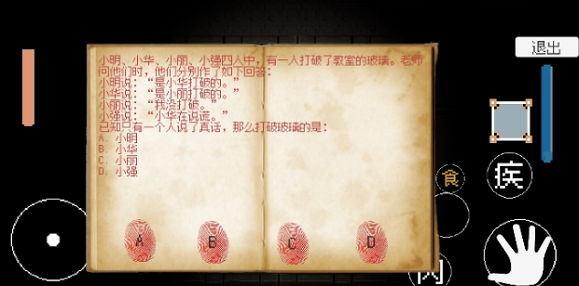 小明、小华、小丽、小强四人中，有一人打破了教室的玻璃。老师
问他们时，他们分别作了如下回答：
小明说：“是小华打破的。”
小华说：“是小丽打破的。”
小丽说：“我没打破。”
小强说：“小华在说谎。”
已知只有一个人说了真话，那么打破玻璃的是：
A. 小明
B. 小华
C. 小丽
D. 小强
A
B
C
D
退出
食
疾